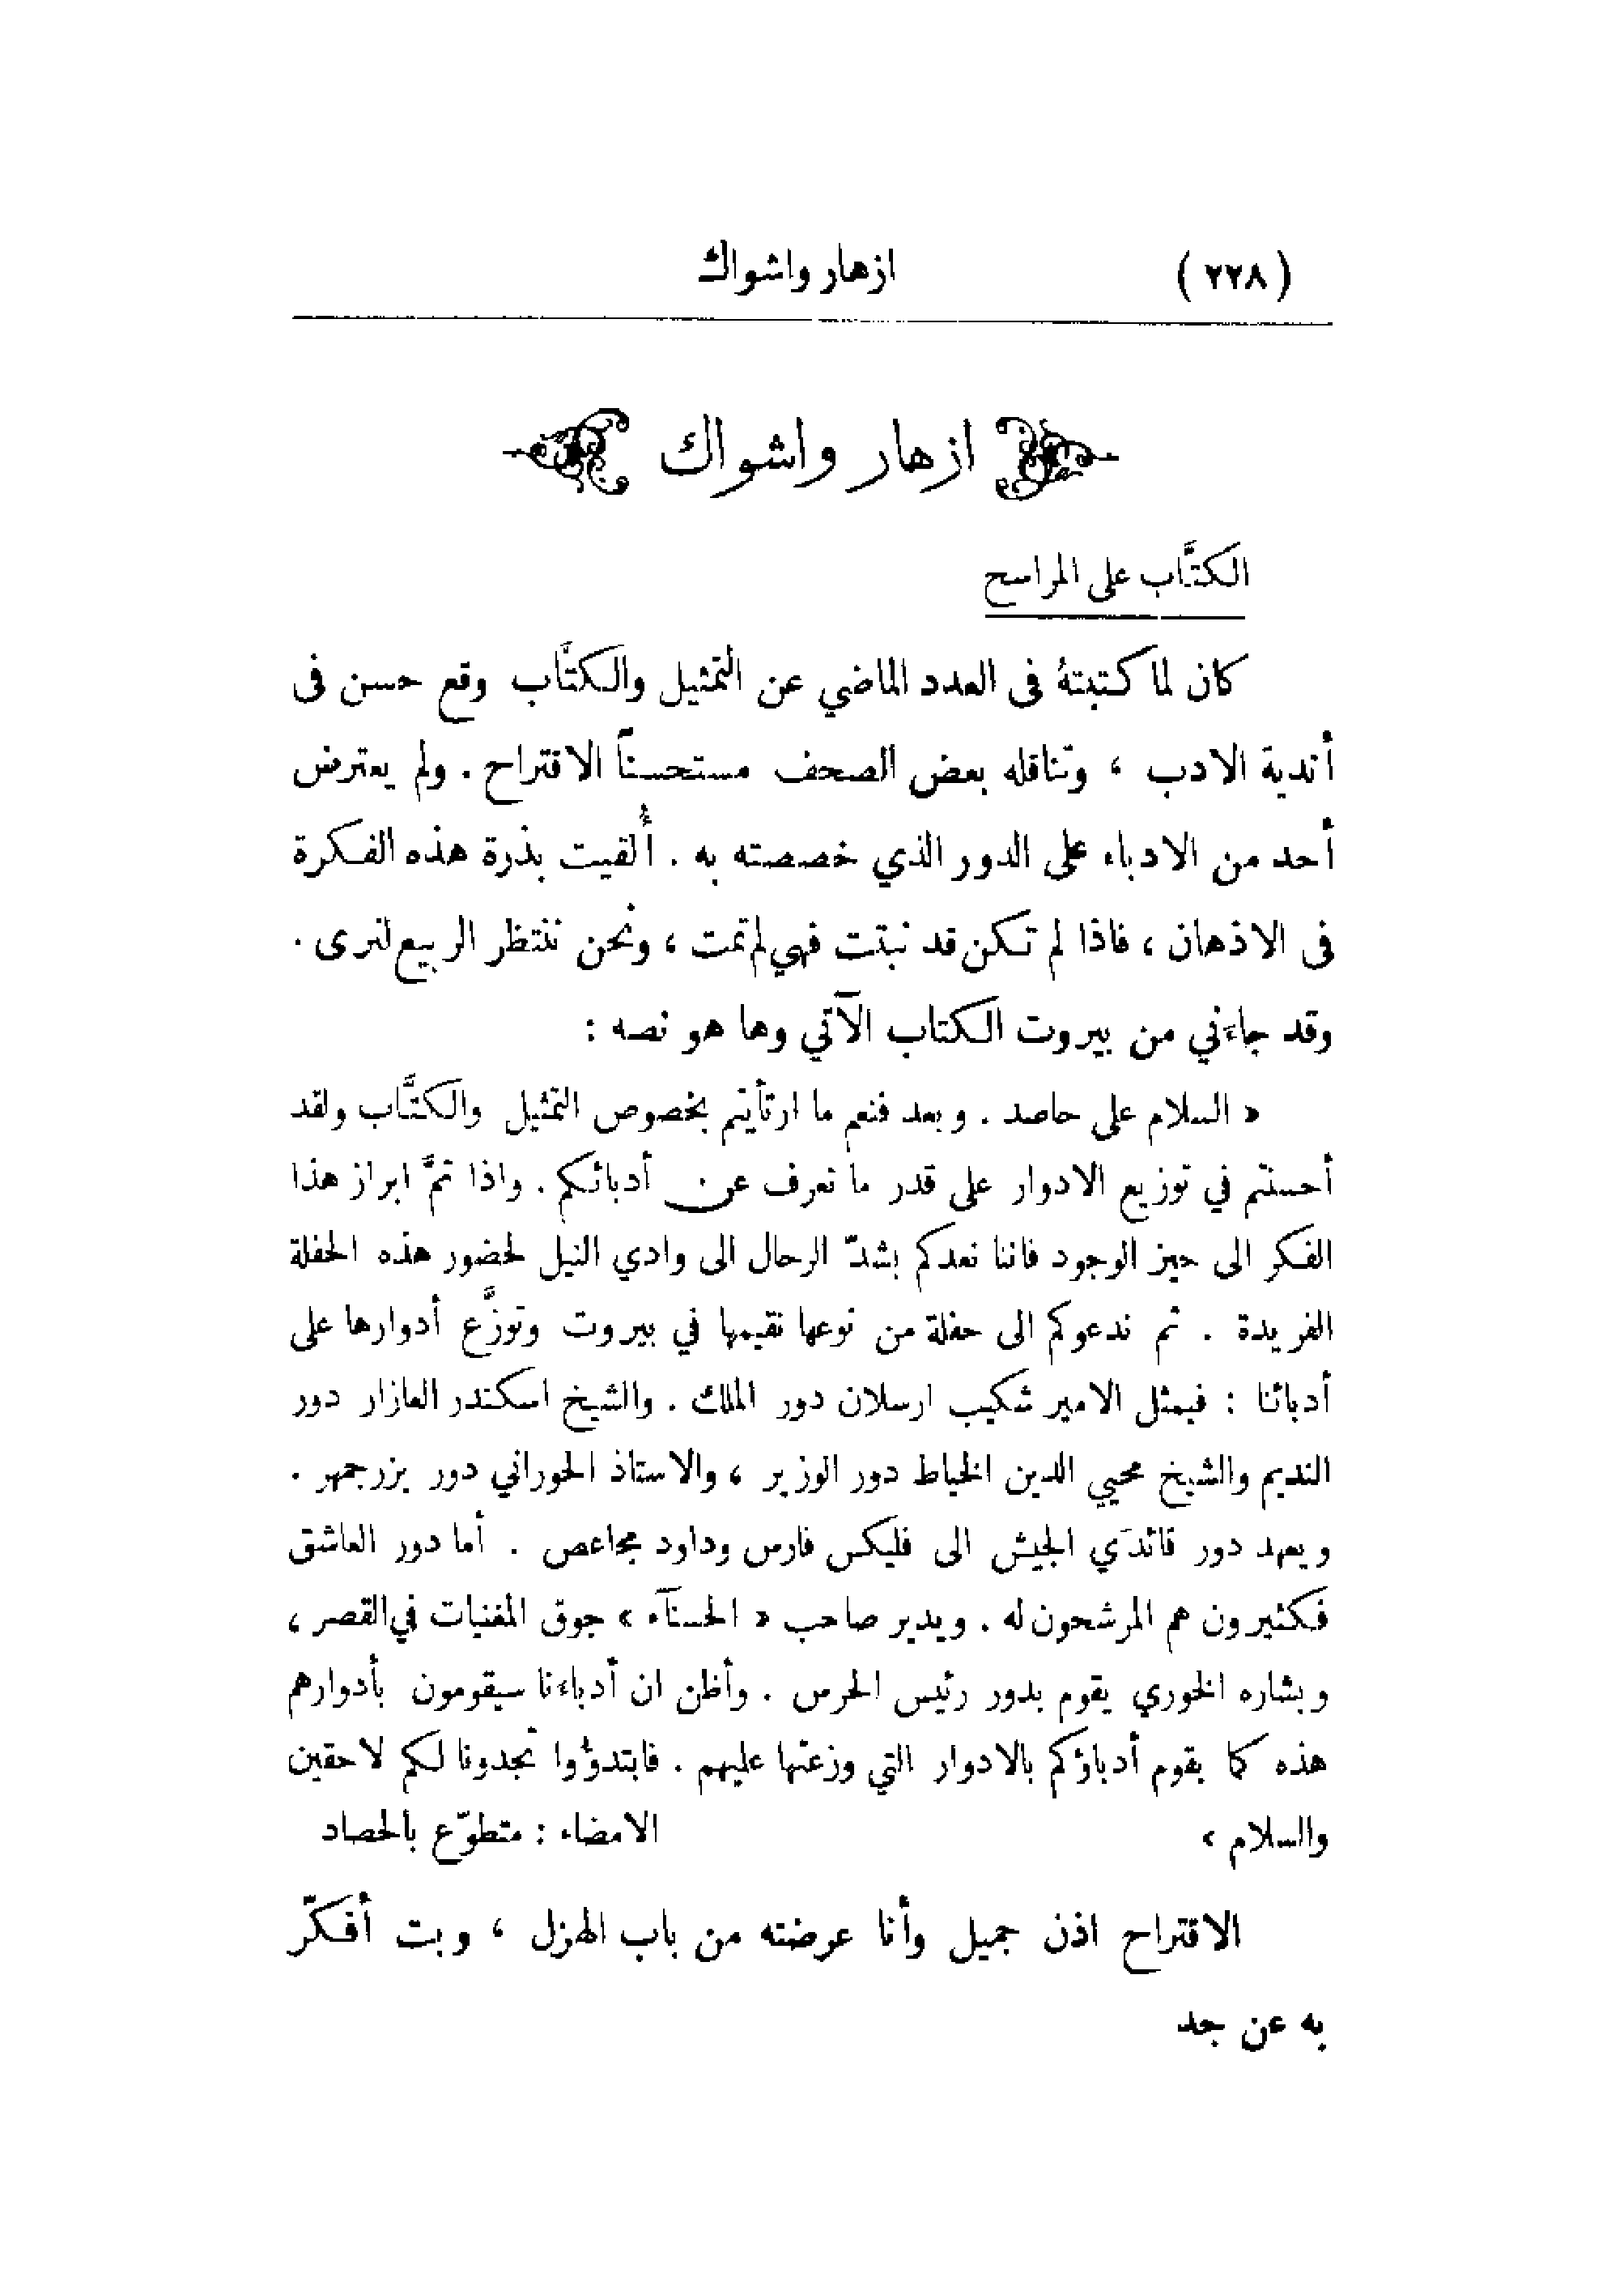 (٢٢٨) ازهار واشواك
ازهار واشواك
الكتَّاب على المراسح
كان لما كتبتهُ فى العدد الماضي عن التمثيل والكتَّاب وقع حسن فى
أندية الادب ، وتناقله بعض الصحف مستحسناً الاقتراح . ولم يعترض
أحد من الادباء على الدور الذي خصصته به . أُلقيت بذرة هذه الفكرة
فى الاذهان ، فاذا لم تكن قد نبتت فهي لم تمت ، ونحن ننتظر الربيع لنرى .
وقد جاءَني من بيروت الكتاب الآتي وها هو نصه :
« السلام على حاصد . وبعد فنعم ما ارتأيتم بخصوص التمثيل والكتَّاب ولقد
أحسنتم في توزيع الادوار على قدر ما نعرف عن أدبائكم . واذا تمَّ ابراز هذا
الفكر الى حيز الوجود فاننا نعدكم بشدّ الرحال الى وادي النيل لحضور هذه الحفلة
الفريدة . ثم ندعوكم الى حفلة من نوعها نقيمها في بيروت ونوزَّع أدوارها على
أدبائنا : فيمثل الامير شكيب ارسلان دور الملك . والشيخ اسكندر العازار دور
النديم والشيخ محيي الدين الخياط دور الوزير ، والاستاذ الحوراني دور بزرجمهر .
ويعهد دور قائدَي الجيش الى فليكس فارس وداود مجاعص . أما دور العاشق
فكثيرون هم المرشحون له . ويدير صاحب « الحسنآء » جوق المغنيات في القصر ،
وبشاره الخوري يقوم بدور رئيس الحرس . وأظن ان أدباءنا سيقومون بأدوارهم
هذه كما يقوم أدباؤكم بالادوار التي وزعتها عليهم . فابتدؤوا تجدونا لكم لاحقين
والسلام » الامضاء : متطوّع بالحصاد
الاقتراح اذن جميل وأنا عرضته من باب الهزل ، وبت أفكّر
به عن جد